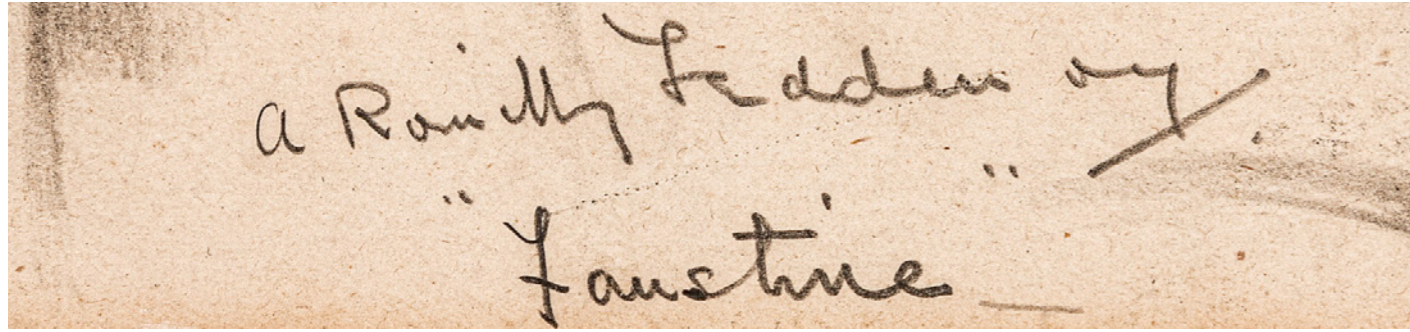 a Romilly Fedden
"Faustine"